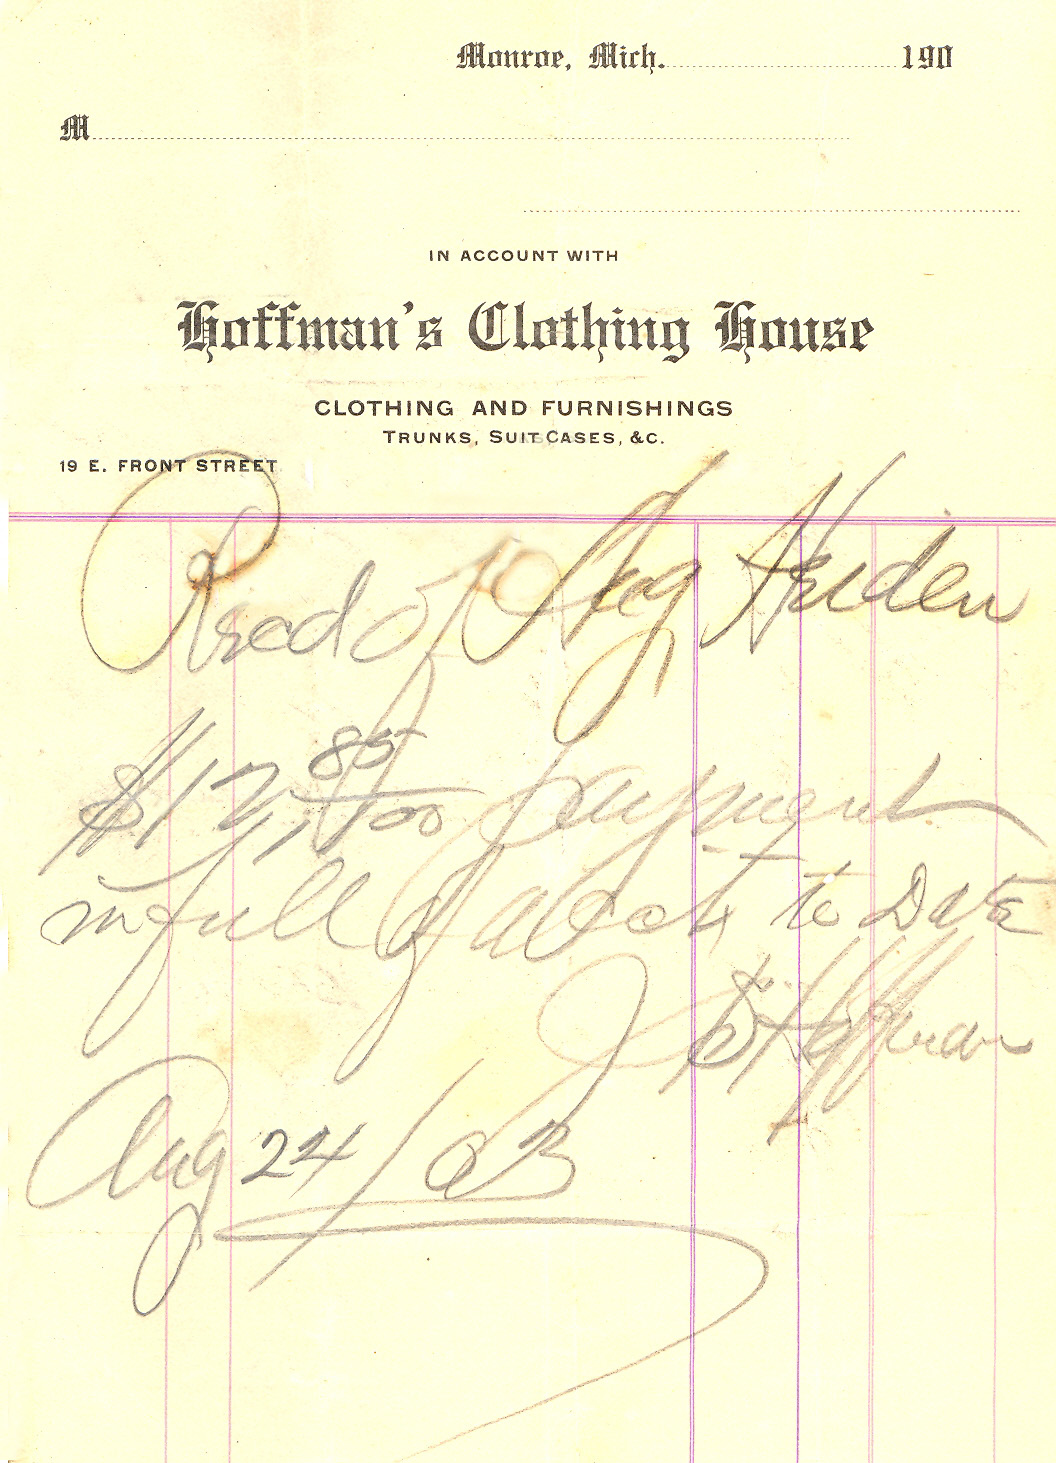 Monroe, Mich. 190
M
IN ACCOUNT WITH
Hoffman's Clothing House
CLOTHING AND FURNISHINGS
TRUNKS, SUIT CASES, &C.
19 E. FRONT STREET
Recd of Aug
$12, 85/100 payment
in full of acct to Date
Hoffman
Aug 24/03